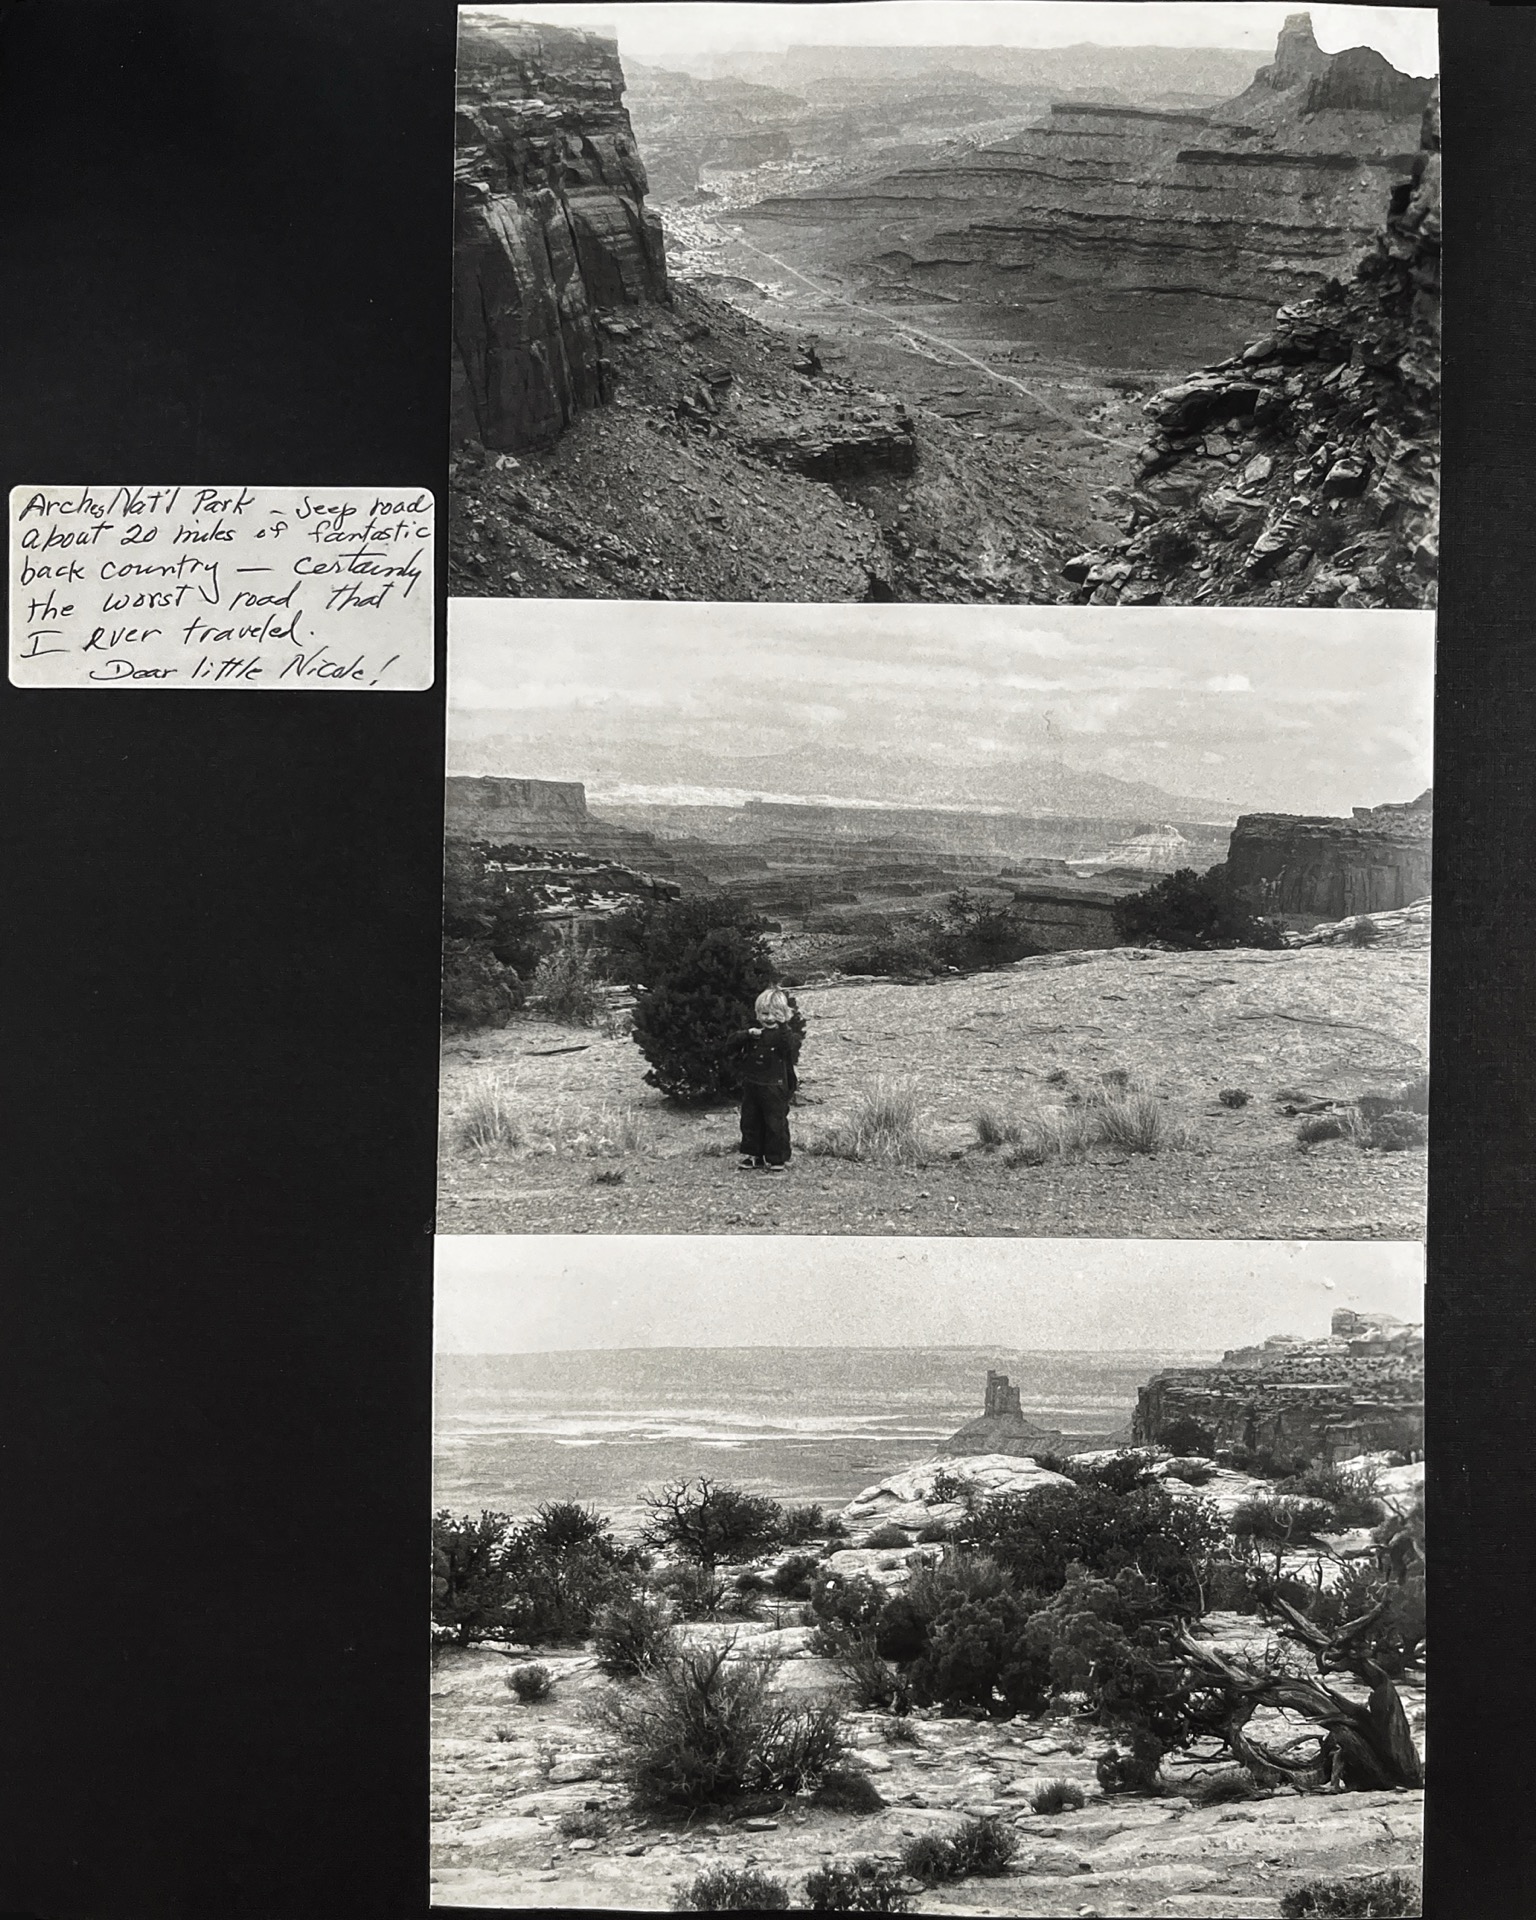 Arches Nat'l Park – Jeep road
about 20 miles of fantastic
back country — certainly
the worst road that
I ever traveled.
Dear little Nicole!